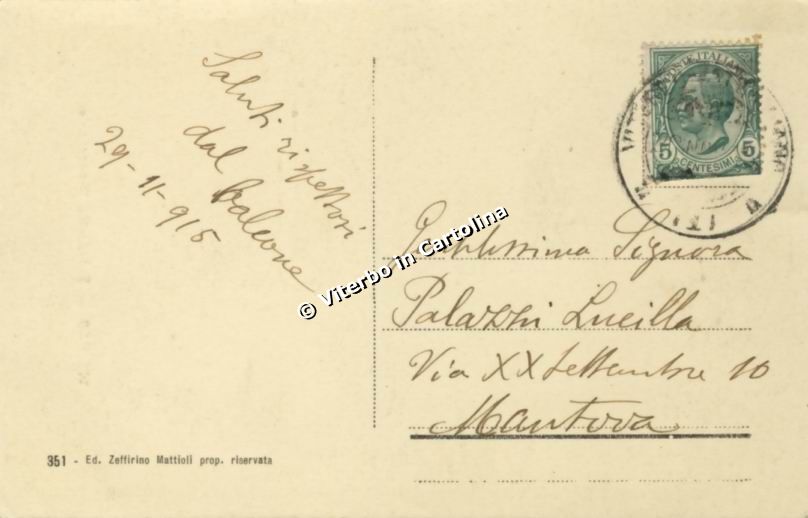 Saluti rispettosi
dal Balcone
29-11-915
POSTE ITALIANE
5 5
CENTESIMI
Gentilissima Signora
Palazzi Lucilla
Via XX Settembre 10
Mantova
© Viterbo in Cartolina
351 - Ed. Zeffirino Mattioli prop. riservata